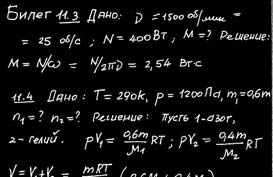 Билет 11.3 Дано: D = 1500 об/мин =
= 25 об/с ; N = 400 Вт ; M = ? Решение:
M = N/ω = N/2πD = 2,54 Вт·с
11.4 Дано: T = 290k, p = 1200 Па, m₁ = 0,6m
n₁ = ? n₂ = ? Решение: пусть 1-азот,
2-гелий. pV₁ = 0,6m/M₁ RT ; pV₂ = 0,4m/M₂ RT
V = V₁ + V₂ = mRT